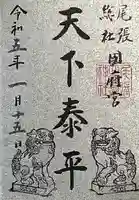 尾張
総社 国府宮
天下泰平
令和五年一月十五日